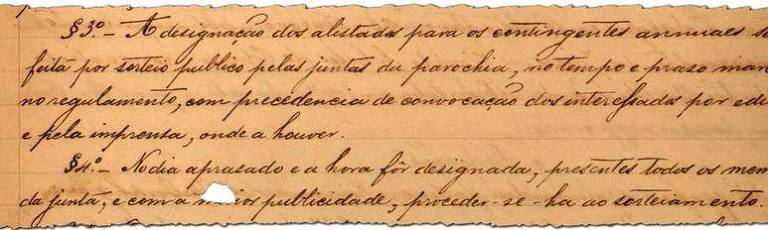 §3º.- A designação dos alistados para os contingentes annuaes se
feita por sorteio publico pelas juntas du parochia, no tempo e praso mar
no regulamento, com precedencia de convocação dos interessados por edi
e pela imprensa, onde a houver.
§4º.- No dia aprasado e a hora fôr designada, presentes todos os mem
da junta, e com a m ior publicidade, proceder-se-ha ao sorteiamento.